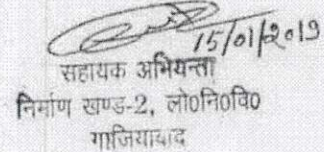 15/01/2019
सहायक अभियन्ता
निर्माण खण्ड-2, लो0नि0वि0
गाजियाबाद